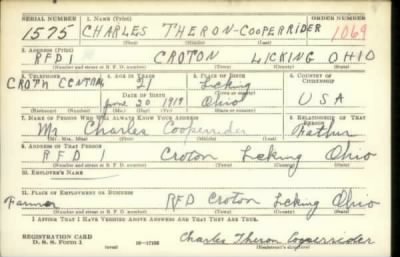 SERIAL NUMBER 1. NAME (Print) ORDER NUMBER
1575 CHARLES THERON-COOPERRIDER 1069
(First) (Middle) (Last)
2. ADDRESS (Print)
RFD 1 CROTON LICKING OHIO
(Number and street or R. F. D. number) (Town) (County) (State)
3. TELEPHONE 4. AGE IN YEARS 5. PLACE OF BIRTH 6. COUNTRY OF CITIZENSHIP
CROTN CENTRAL 21 Licking
DATE OF BIRTH (Town or county)
June 20 1919 Ohio USA
(Exchange) (Number) (Mo.) (Day) (Yr.) (State or country)
7. NAME OF PERSON WHO WILL ALWAYS KNOW YOUR ADDRESS 8. RELATIONSHIP OF THAT PERSON
Mr Charles Cooperrider Father
(Mr., Mrs., Miss) (First) (Middle) (Last)
9. ADDRESS OF THAT PERSON
RFD 1 Croton Licking Ohio
(Number and street or R. F. D. number) (Town) (County) (State)
10. EMPLOYER'S NAME
11. PLACE OF EMPLOYMENT OR BUSINESS
Farmer RFD Croton Licking Ohio
(Number and street or R. F. D. number) (Town) (County) (State)
I AFFIRM THAT I HAVE VERIFIED ABOVE ANSWERS AND THAT THEY ARE TRUE.
REGISTRATION CARD
D. S. S. Form 1 (over) 16-17105 Charles Theron Cooperrider
(Registrant's signature)